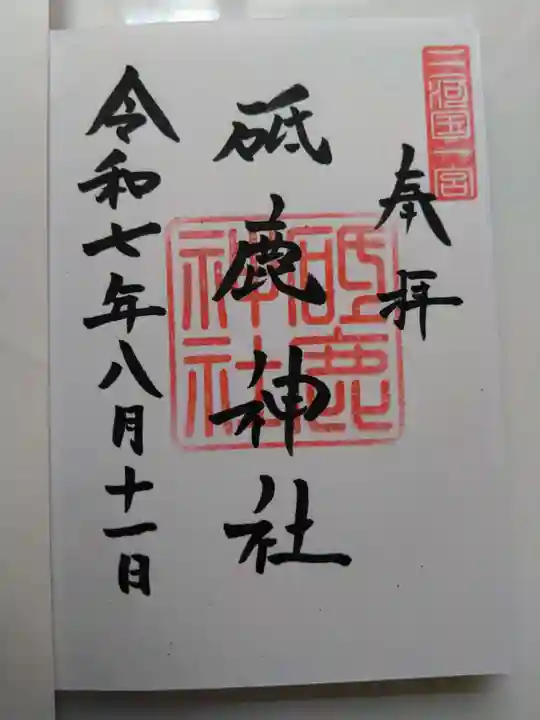 三河国一宮
奉拝
砥鹿神社
砥鹿
神社
令和七年八月十一日